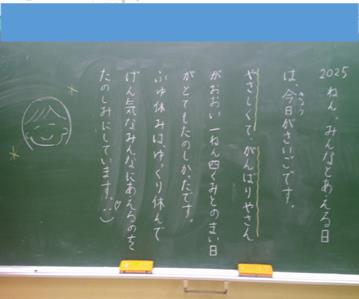 2025ねん、みんなとあえる日
は、今日がさいごです。
やさしくて、がんばりやさん
がおおい一ねん四くみとのまい日
がとてもたのしかったです。
ふゆ休みは、ゆっくり休んで
げん気なみんなにあえるのを
たのしみにしています。:)♡